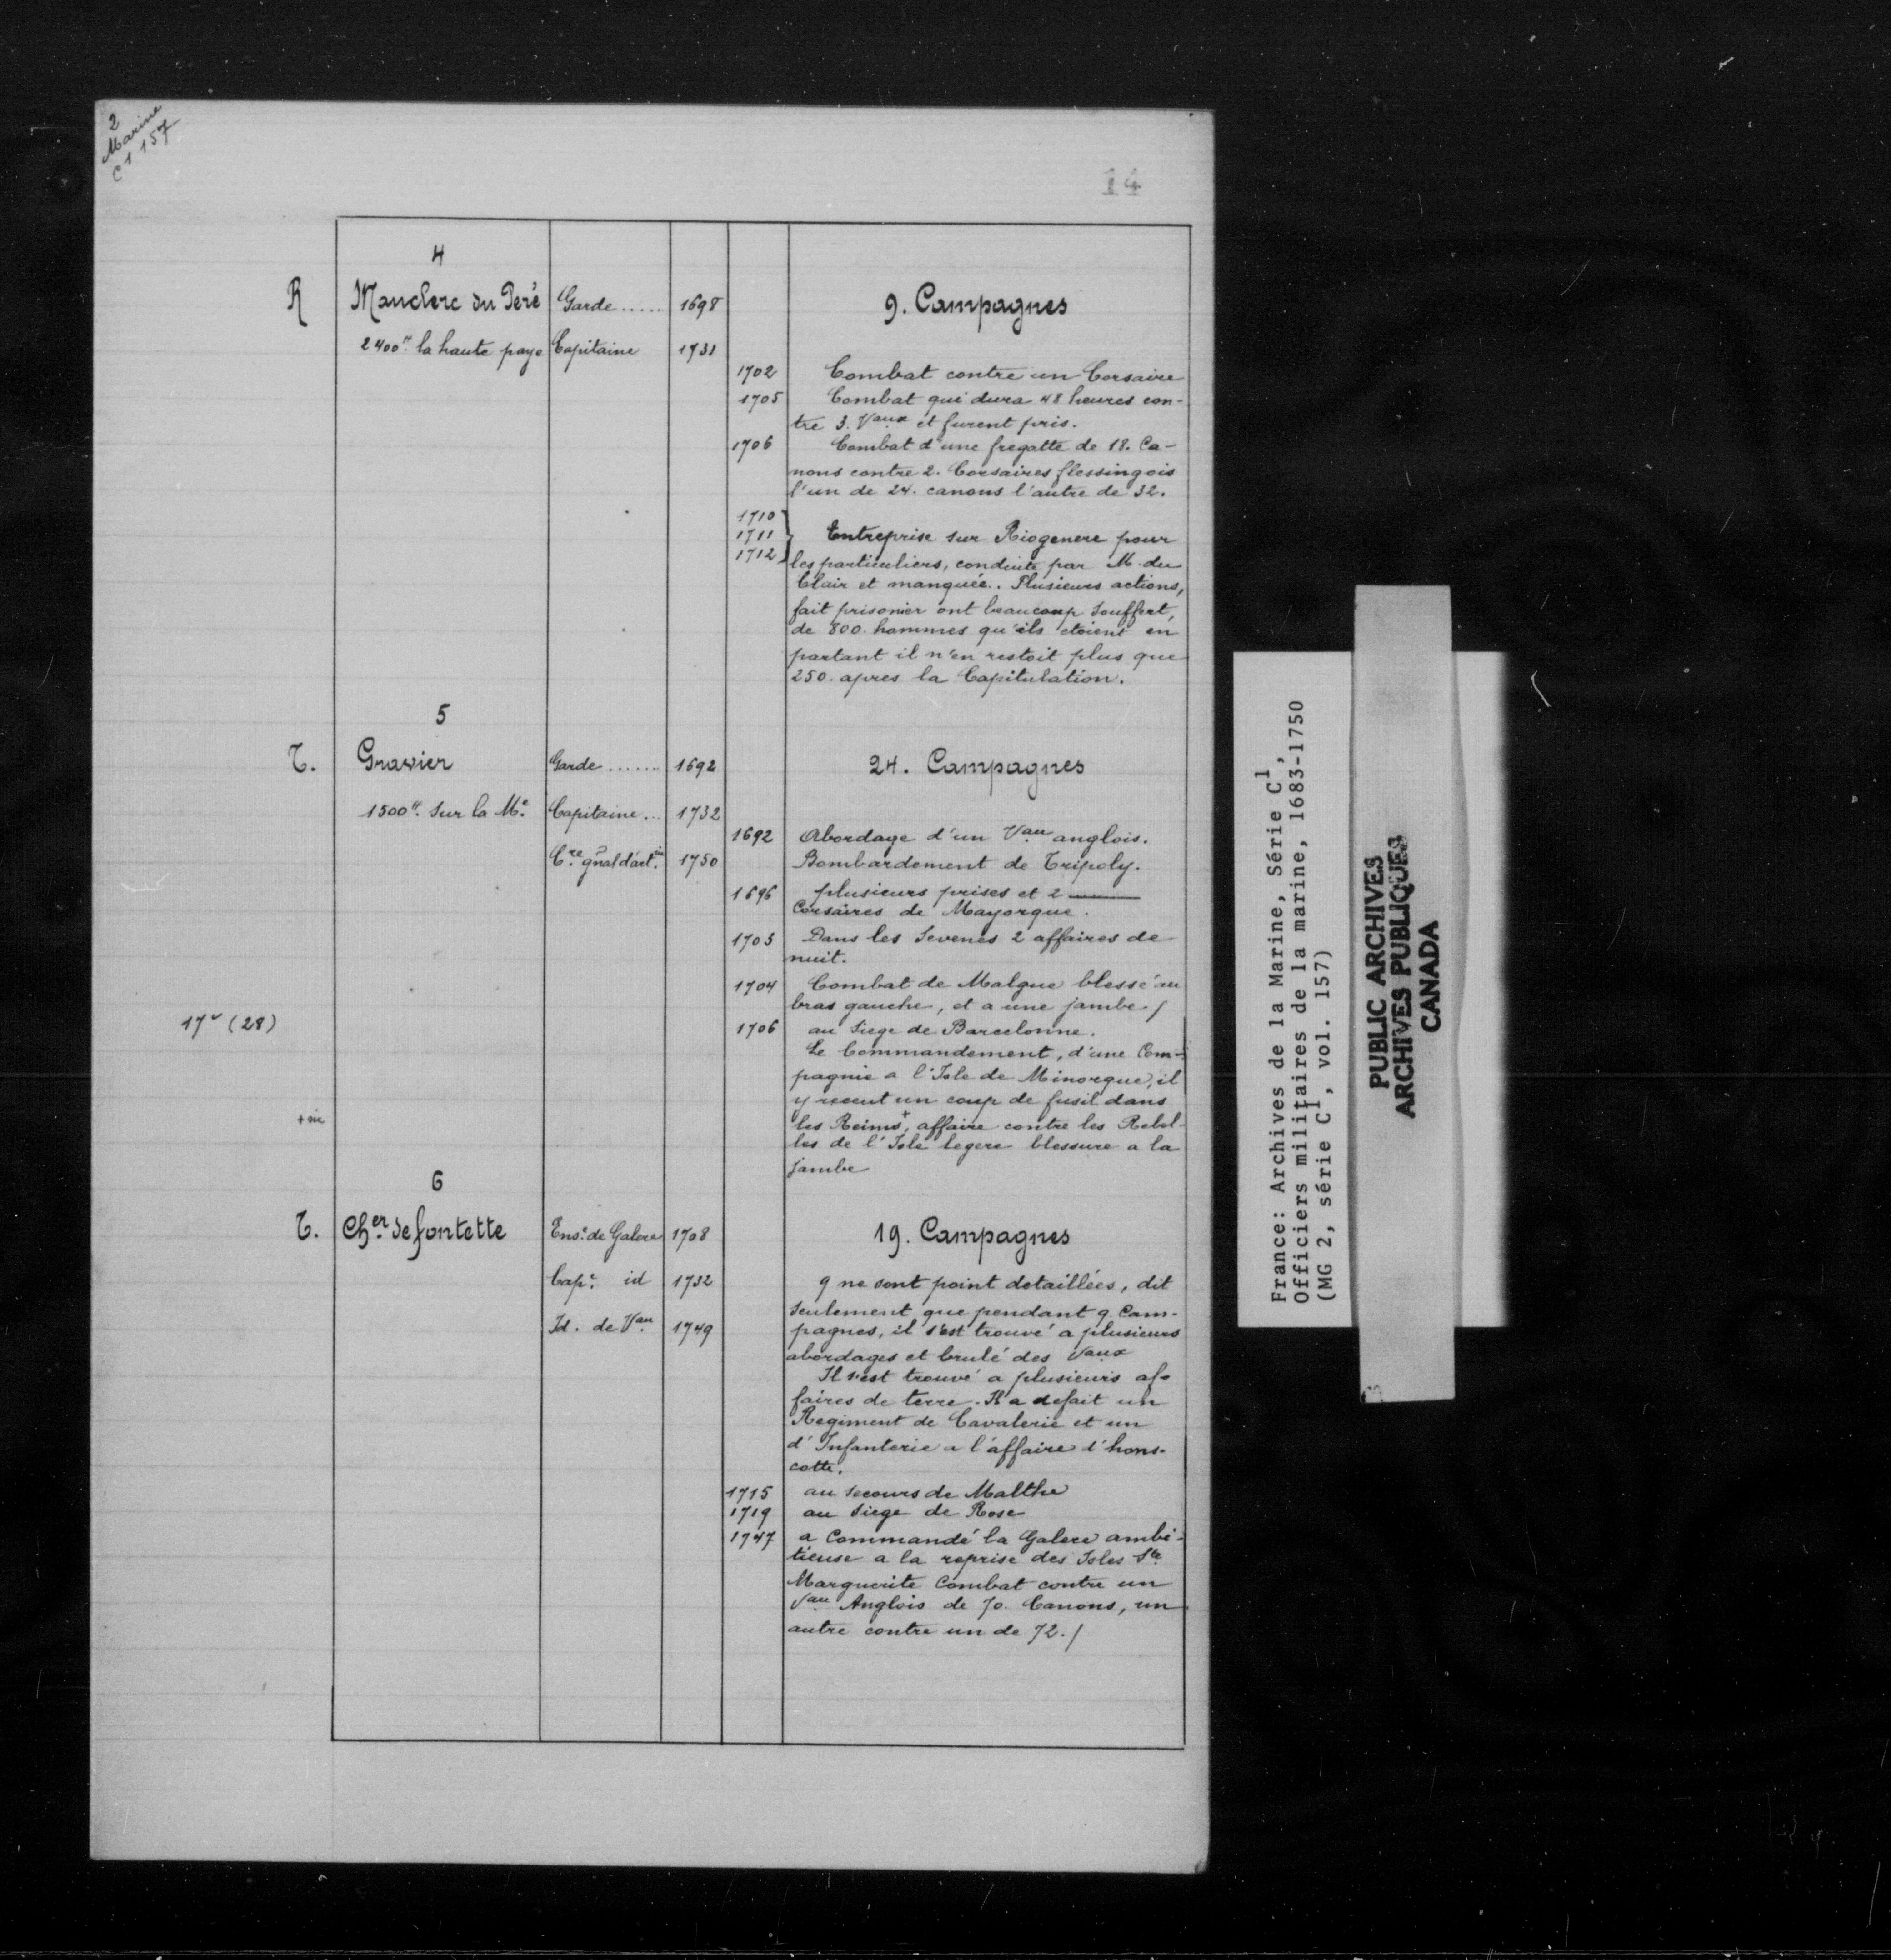 2
Marine
C1 157
14
4
R Mauclerc du Peré Garde...... 1698 9. Campagnes
2400tt. la haute paye Capitaine 1731
1702 Combat contre un Corsaire
1705 Combat qui dura 48 heures con-
tre 3. Vaux et furent pris.
1706 Combat d'une fregatte de 18. Ca-
nons contre 2. Corsaires flessingois
l'un de 24. canons l'autre de 32.
1710
1711 Entreprise sur Riogenere pour
1712 les particuliers, conduite par M. du
Clair et manquée. Plusieurs actions,
fait prisonier ont beaucoup souffert,
de 800. hommes qu'ils etoient en
partant il n'en restoit plus que
250. apres la Capitulation.
5
T. Gravier Garde....... 1692 24. Campagnes
1500tt. sur la Me. Capitaine... 1732
1692 Abordage d'un Vau anglois.
Cre gñal d'artie. 1750 Bombardement de Tripoly.
1696 plusieurs prises et 2
Corsaires de Mayorque.
1703 Dans les Sevenes 2 affaires de
nuit.
1704 Combat de Malgue blessé au
bras gauche, et a une jambe./
17v (28)
1706 au Siege de Barcelonne.
Le Commandement, d'une Com-
pagnie a l'Isle de Minorque, il
y receut un coup de fusil dans
+ sic les Reims+, affaire contre les Rebel-
les de l'Isle legere blessure a la
jambe
6
T. Cher. de fontette Ense. de Galere 1708 19. Campagnes
Cape. id 1732 9 ne sont point detaillées, dit
seulement que pendant 9. Cam-
Id. de Vau 1749 pagnes, il s'est trouvé a plusieurs
abordages et brulé des Vaux
Il s'est trouvé a plusieurs af-
faires de terre. Il a defait un
Regiment de Cavalerie et un
d'Infanterie a l'affaire d'hons-
cotte.
1715 au secours de Malthe
1719 au Siege de Rose
1747 a Commandé la Galere ambi-
tieuse a la reprise des Isles Ste
Marguerite Combat contre un
Vau Anglois de 70. Canons, un
autre contre un de 72./
France: Archives de la Marine, Série C1,
Officiers militaires de la marine, 1683-1750
(MG 2, série C1, vol. 157)
PUBLIC ARCHIVES
ARCHIVES PUBLIQUES
CANADA